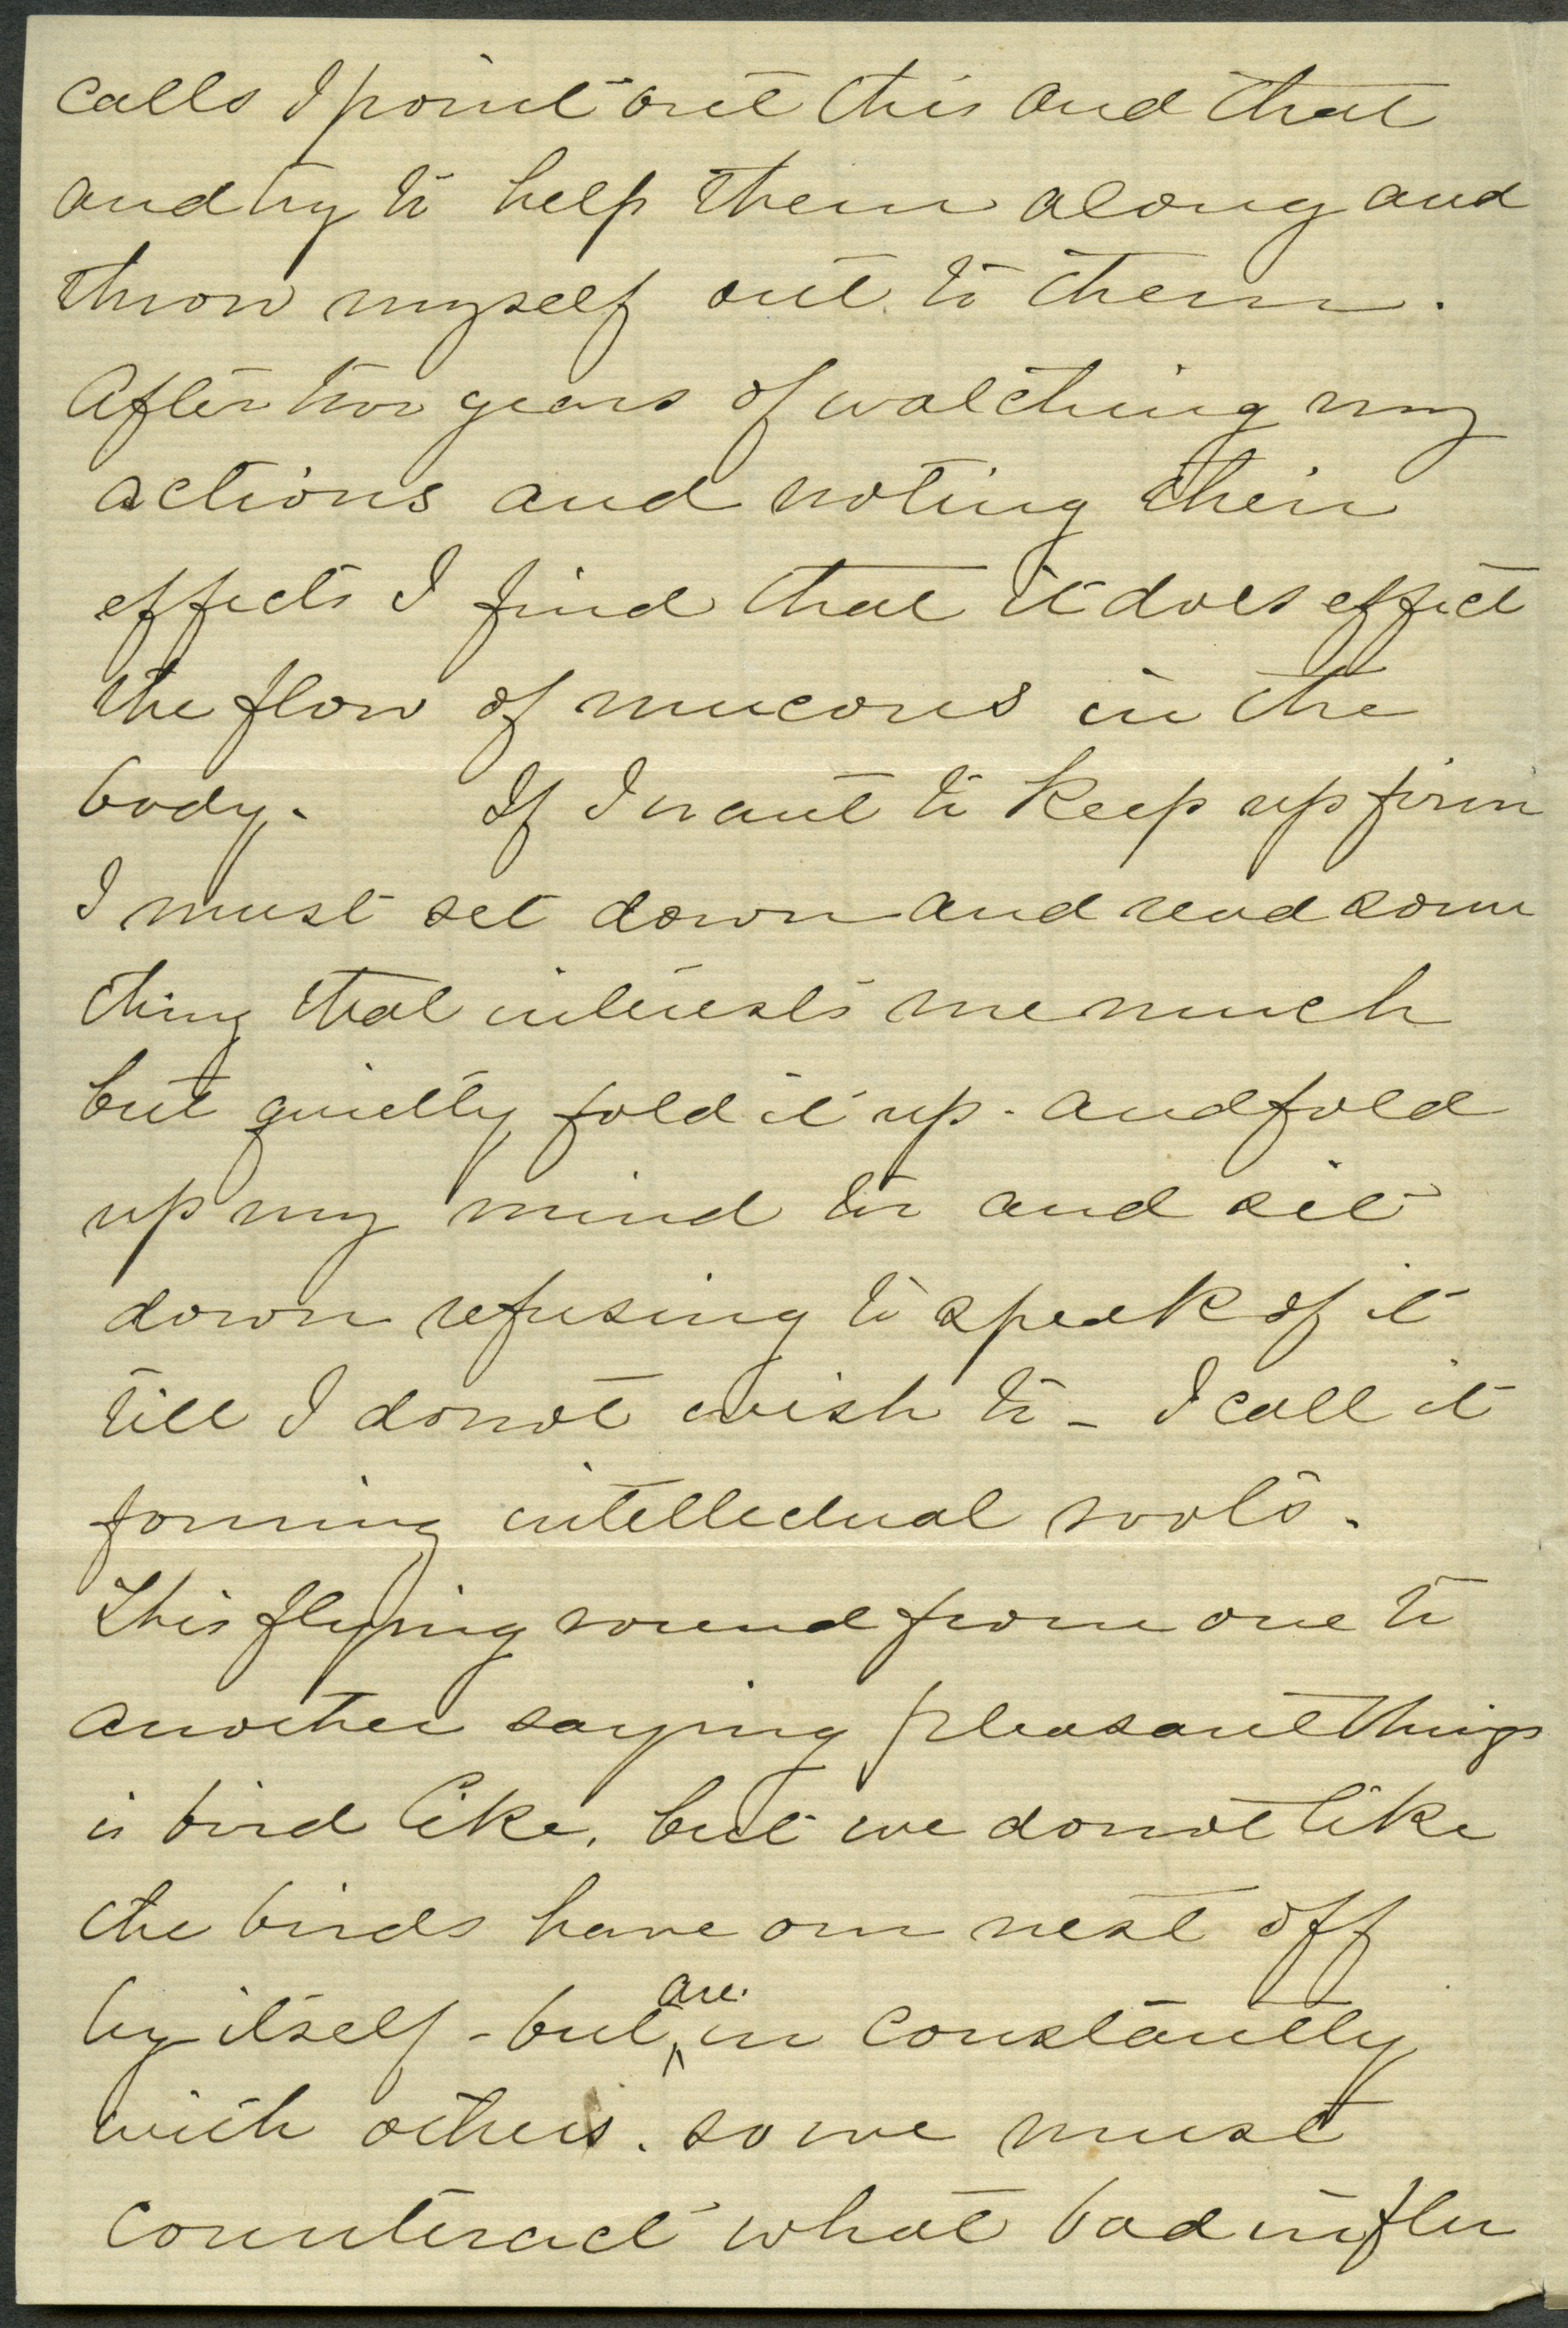 calls I point out this and that
and try to help them along and
throw myself out to them.
After two years of watching my
actions and noting their
effects I find that it does effect
the flow of mucous in the
body. If I want to keep up firm
I must set down and read some
thing that interests me much
but quietly fold it up - and fold
up my mind to and sit
down refusing to speak of it
till I do not wish to - I call it
forming intellectual roots.
This flying round from one to
another saying pleasant things
is bird like, but we do not like
the birds have our nest off
by itself - but are in constantly
with others. so we must
counteract what bad influ